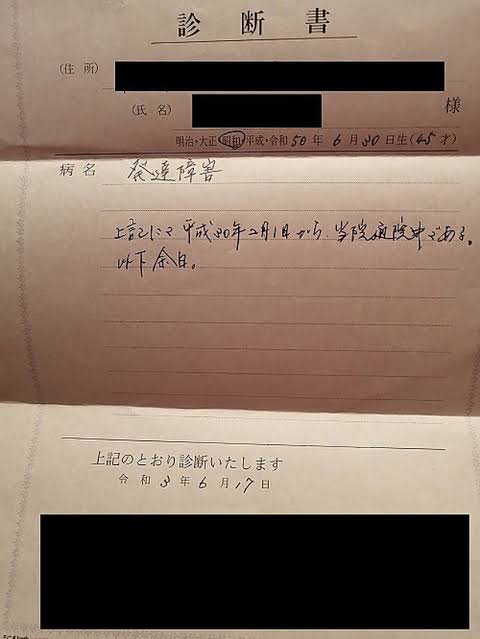 診断書
(住所)
(氏名) 様
明治・大正・昭和・平成・令和50年6月30日生(45才)
病名 発達障害
上記にて平成30年2月1日から、当院通院中である。
以下余白。
上記のとおり診断いたします
令和3年6月17日